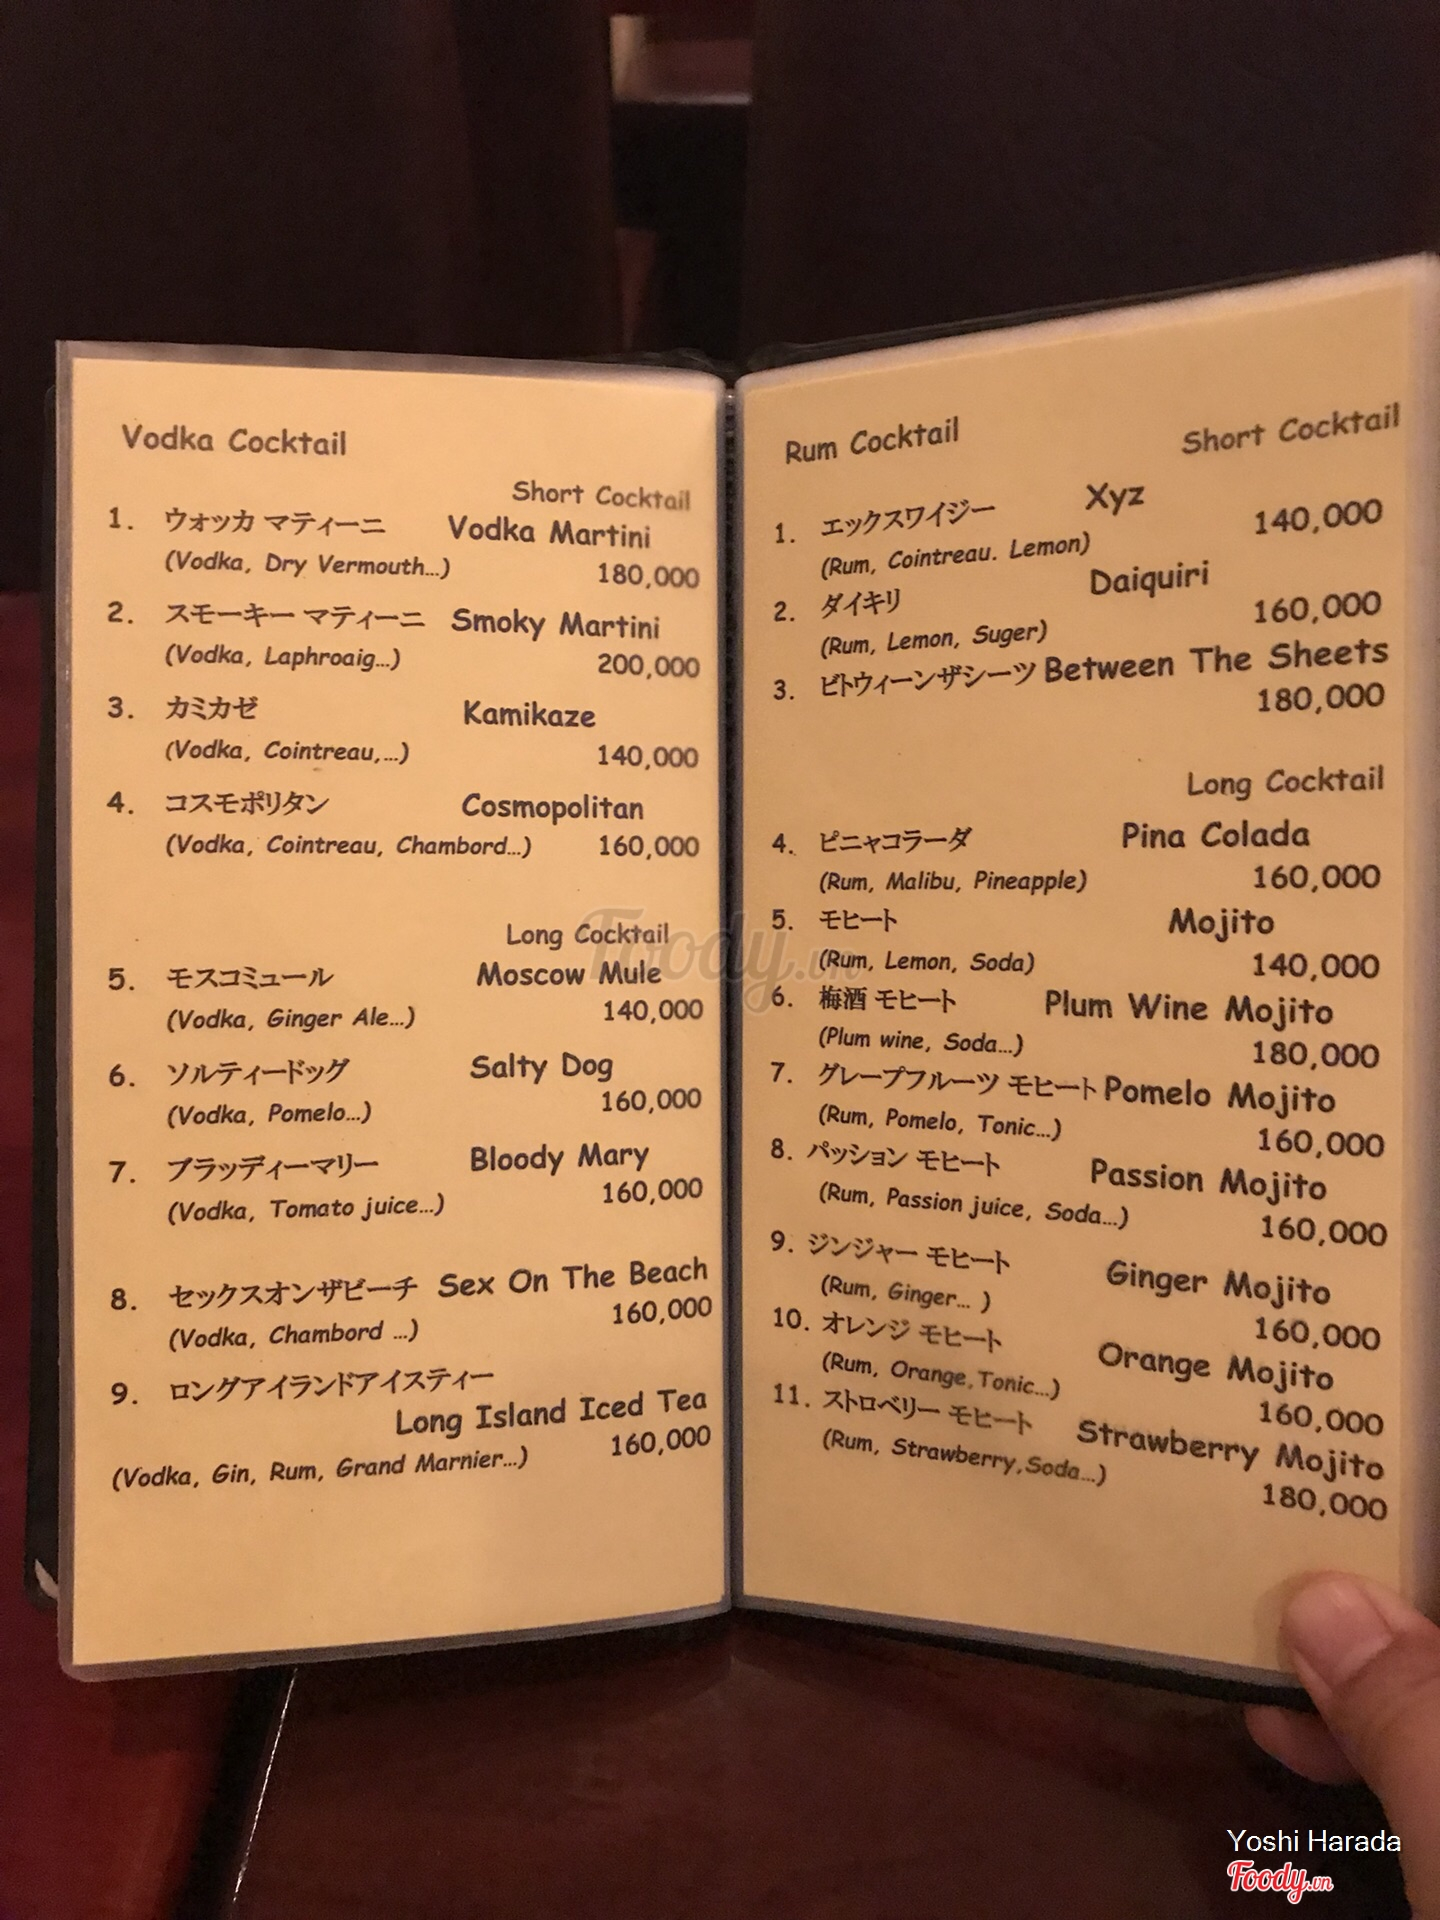 Vodka Cocktail
Short Cocktail
1. ウォッカ マティーニ Vodka Martini
(Vodka, Dry Vermouth…) 180,000
2. スモーキー マティーニ Smoky Martini
(Vodka, Laphroaig…) 200,000
3. カミカゼ Kamikaze
(Vodka, Cointreau,…) 140,000
4. コスモポリタン Cosmopolitan
(Vodka, Cointreau, Chambord…) 160,000
Long Cocktail
5. モスコミュール Moscow Mule
(Vodka, Ginger Ale…) 140,000
6. ソルティードッグ Salty Dog
(Vodka, Pomelo…) 160,000
7. ブラッディーマリー Bloody Mary
(Vodka, Tomato juice…) 160,000
8. セックスオンザビーチ Sex On The Beach
(Vodka, Chambord …) 160,000
9. ロングアイランドアイスティー
Long Island Iced Tea
(Vodka, Gin, Rum, Grand Marnier…) 160,000
Rum Cocktail
Short Cocktail
1. エックスワイジー Xyz
(Rum, Cointreau. Lemon) 140,000
2. ダイキリ Daiquiri
(Rum, Lemon, Suger) 160,000
3. ビトウィーンザシーツ Between The Sheets
180,000
Long Cocktail
4. ピニャコラーダ Pina Colada
(Rum, Malibu, Pineapple) 160,000
5. モヒート Mojito
(Rum, Lemon, Soda) 140,000
6. 梅酒 モヒート Plum Wine Mojito
(Plum wine, Soda…) 180,000
7. グレープフルーツ モヒート Pomelo Mojito
(Rum, Pomelo, Tonic…) 160,000
8. パッション モヒート Passion Mojito
(Rum, Passion juice, Soda…) 160,000
9. ジンジャー モヒート Ginger Mojito
(Rum, Ginger… ) 160,000
10. オレンジ モヒート Orange Mojito
(Rum, Orange,Tonic…) 160,000
11. ストロベリー モヒート Strawberry Mojito
(Rum, Strawberry,Soda…) 180,000
Foody.vn
Yoshi Harada
Foody.vn